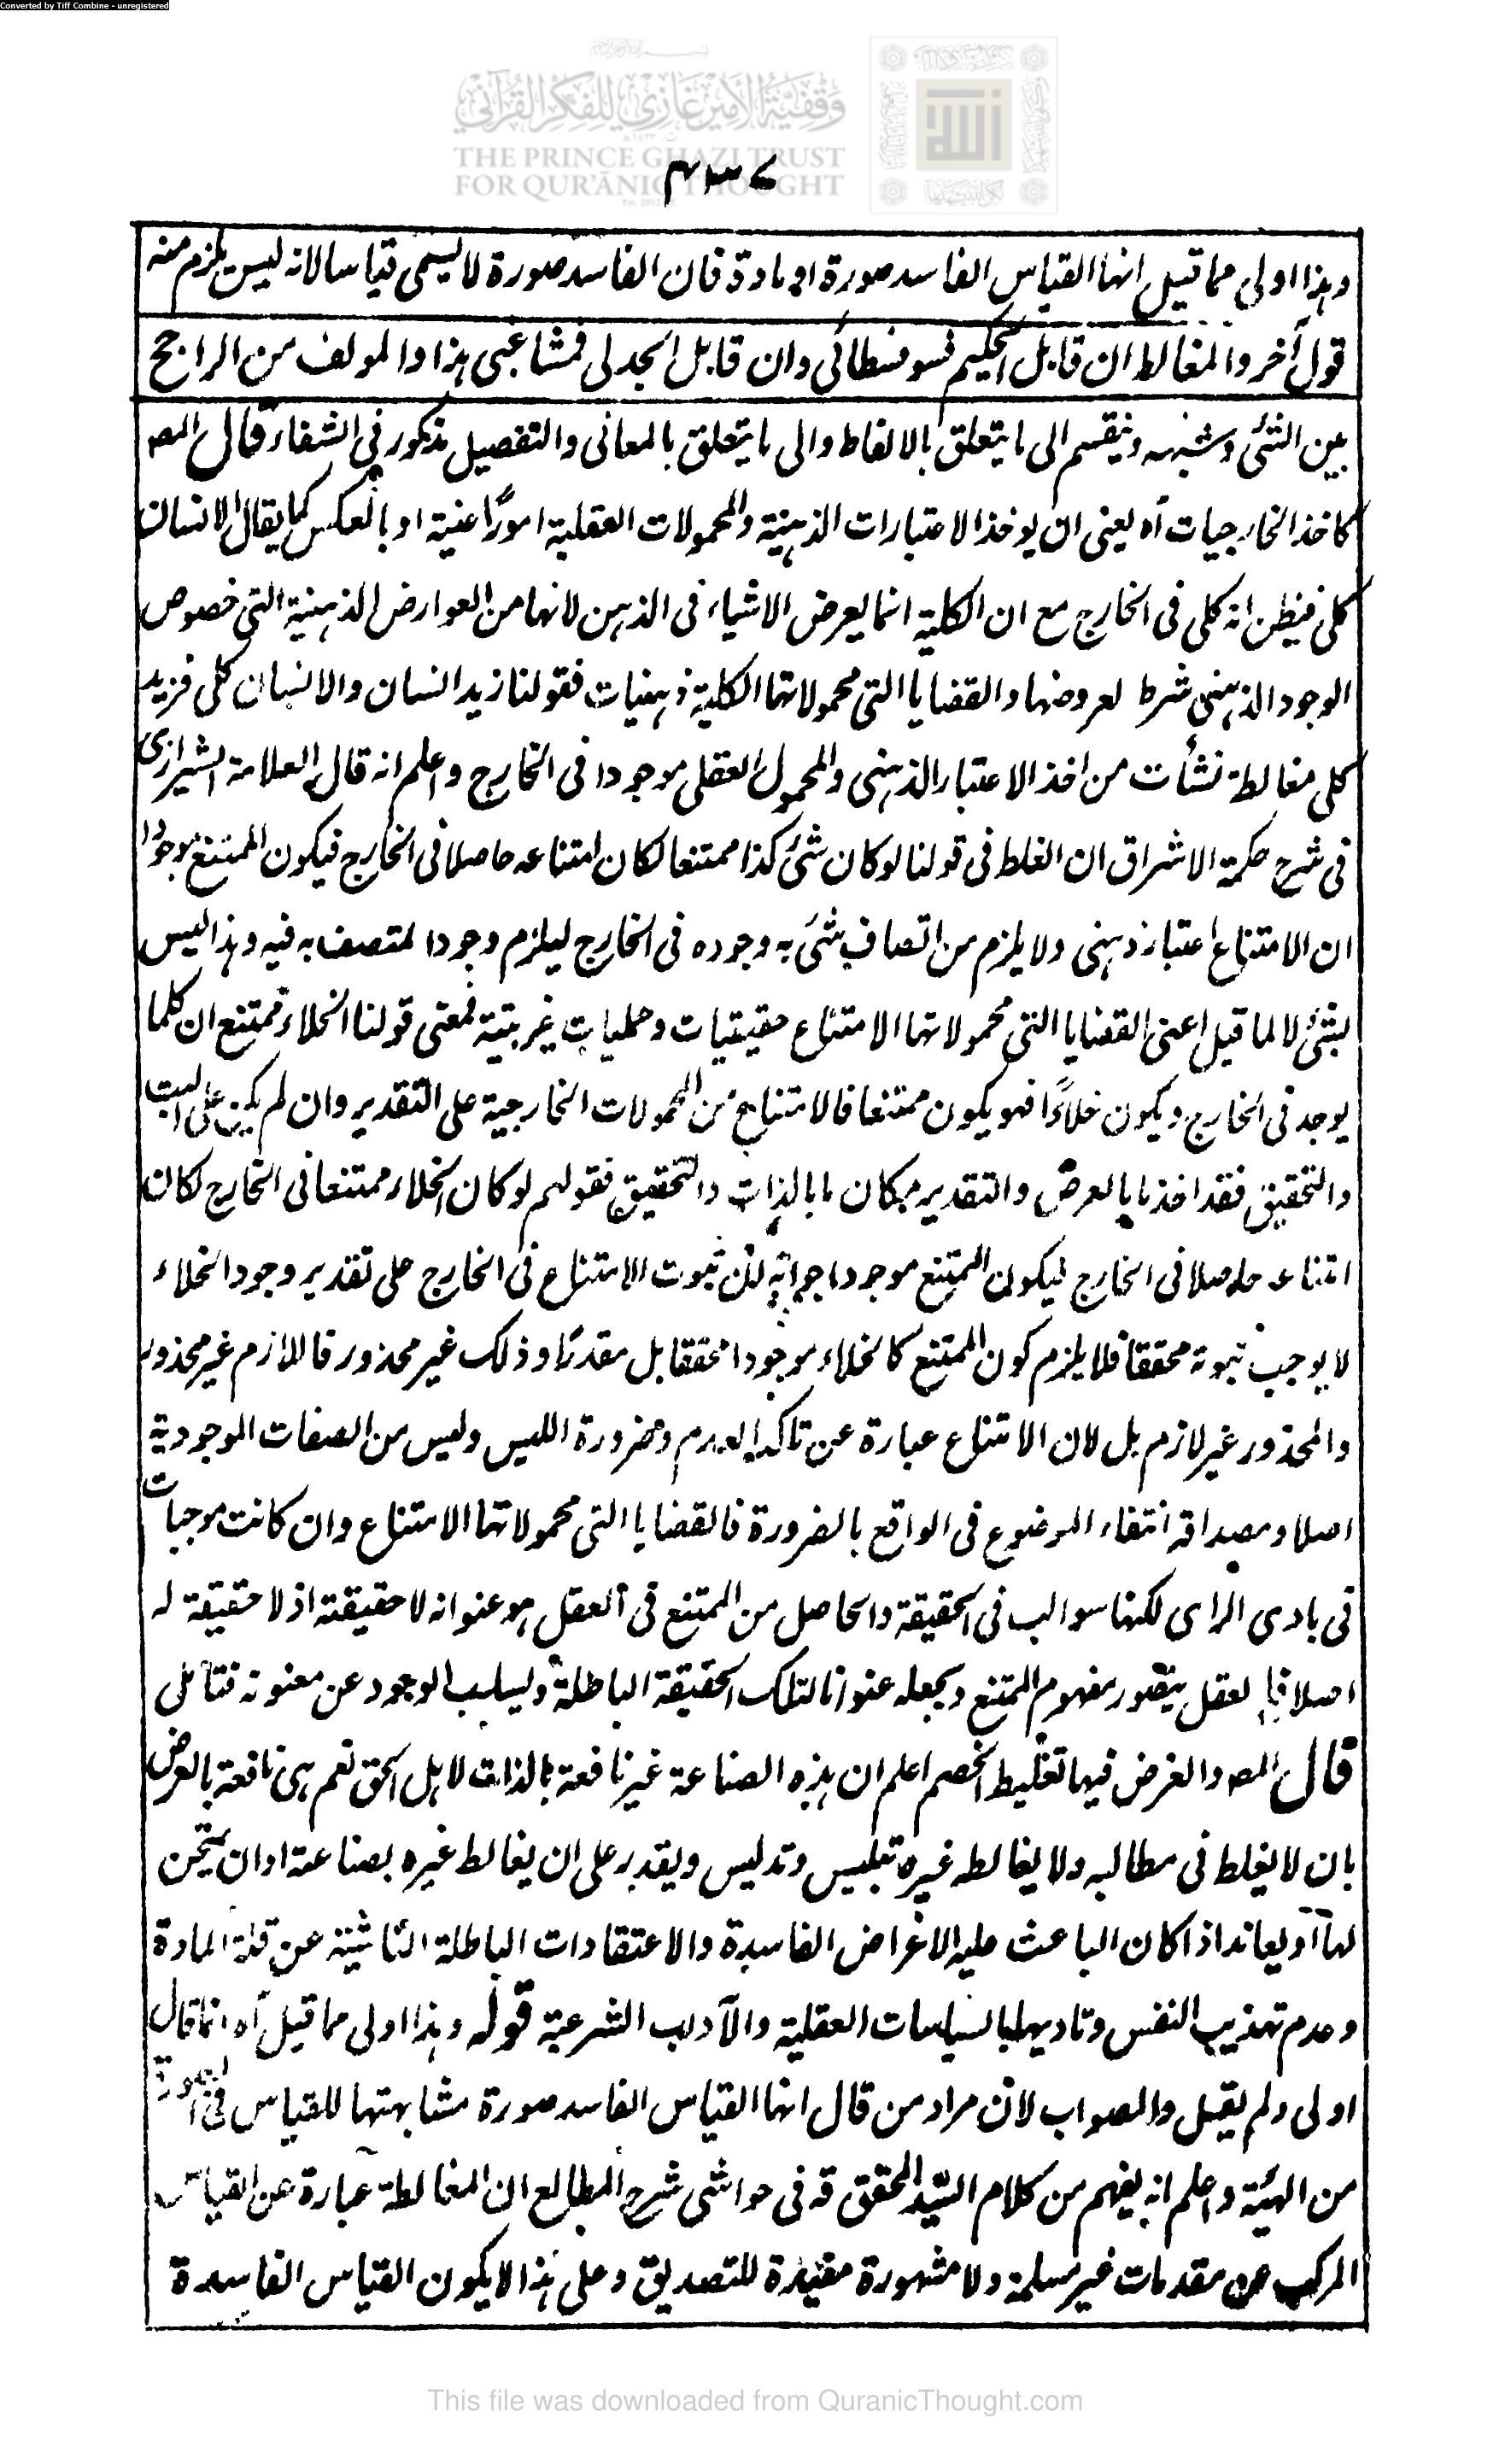 Converted by Tiff Combine - unregistered
وقفية الأمير غازي للفكر القرآني
THE PRINCE GHAZI TRUST
FOR QUR'ĀNIC THOUGHT
٤٣٧
وہذا اولى مما قيل انہا القياس الفاسد صورة او مادة فان الفاسد صورة لا يسمى قياسا لانہ ليس يلزم منہ
قول آخر والمغالط ان قابل الحكيم فسوفسطائی وان قابل الجدلی فمشاغبی ہذا والمولف من الراجح
بين الشئ وشبہہ وينقسم الى ما يتعلق بالالفاظ والى ما يتعلق بالمعانی والتفصيل مذكور فی الشفاء قال المصہ
كاخذ الخارجيات آہ يعنی ان يوخذ الاعتبارات الذہنية والمحمولات العقلية امورًا عنية او بالعكس كما يقال الانسان
كلی فيظن انہ كلی فی الخارج مع ان الكلية انما يعرض الاشياء فی الذہن لانہا من العوارض الذہنية التی خصوص
الوجود الذہنی شرط لعروضہا والقضايا التی محمولاتہا الكلية ذہنيات فقولنا زيد انسان والانسان كلی فزيد
كلی مغالطة نشأت من اخذ الاعتبار الذہنی والمحمول العقلی موجودا فی الخارج واعلم انہ قال العلامة الشيرازی
فی شرح حكمة الاشراق ان الغلط فی قولنا لو كان شئ كذا ممتنعا لكان امتناعہ حاصلا فی الخارج فيكون الممتنع موجودًا
ان الامتناع اعتبار ذہنی ولا يلزم من اتصاف شئ بہ وجودہ فی الخارج ليلزم وجود المتصف بہ فيہ وہذا ليس
بشئ لا لما قيل اعنی القضايا التی محمولاتہا الامتناع حقيقيات وحمليات غير بتية فمعنى قولنا الخلاء ممتنع ان كلما
يوجد فی الخارج ويكون خلاءً فہو يكون ممتنعا فالامتناع من المحمولات الخارجية على التقدير وان لم يكن على البت
والتحقيق فقد اخذ ما بالعرض والتقدير مكان ما بالذات والتحقيق فقولہم لو كان الخلاء ممتنعا فی الخارج لكان
امتناعہ حاصلا فی الخارج فيكون الممتنع موجودا جوابہ لان ثبوت الامتناع فی الخارج على تقدير وجود الخلاء
لا يوجب ثبوتہ محققا فلا يلزم كون الممتنع كالخلاء موجودا محققا بل مقدرًا وذلك غير محذور فاللازم غير محذور
والمحذور غير لازم بل لان الامتناع عبارة عن تاكد العدم وضرورة الليس وليس من الصفات الوجودية
اصلا ومصداقہ انتفاء الموضوع فی الواقع بالضرورة فالقضايا التی محمولاتہا الامتناع وان كانت موجبات
فی بادی الرای لكنہا سوالب فی الحقيقة والحاصل من الممتنع فی العقل ہو عنوانہ لا حقيقتہ اذ لا حقيقة لہ
اصلا فالعقل يتصور مفہوم الممتنع ويجعلہ عنوانا لتلك الحقيقة الباطلة ويسلب الوجود عن معنونہ فتأمل
قال المصہ والغرض فيہا تغليط الخصم اعلم ان ہذہ الصناعة غير نافعة بالذات لاہل الحق نعم ہی نافعة بالعرض
بان لا يغلط فی مطالبہ ولا يغالطہ غيرہ تلبيس وتدليس ويقدر على ان يغالط غيرہ بصناعة او ان يمتحن
لہا او يعاند اذا كان الباعث عليہ الاغراض الفاسدة والاعتقادات الباطلة الناشية عن قلة المادة
وعدم تہذيب النفس وتاديبہا بالسياسات العقلية والآداب الشرعية قولہ وہذا اولى مما قيل آہ انما قال
اولى ولم يقل والصواب لان مراد من قال انہا القياس الفاسد صورة مشابہتہا للقياس فی الصورة
من الہيئة واعلم انہ يفہم من كلام السيد المحقق قہ فی حواشی شرح المطالع ان المغالطة عبارة عن القياس
المركب من مقدمات غير مسلمة ولا مشہورة مفيدة للتصديق وعلى ہذا لا يكون القياس الفاسدة
This file was downloaded from QuranicThought.com